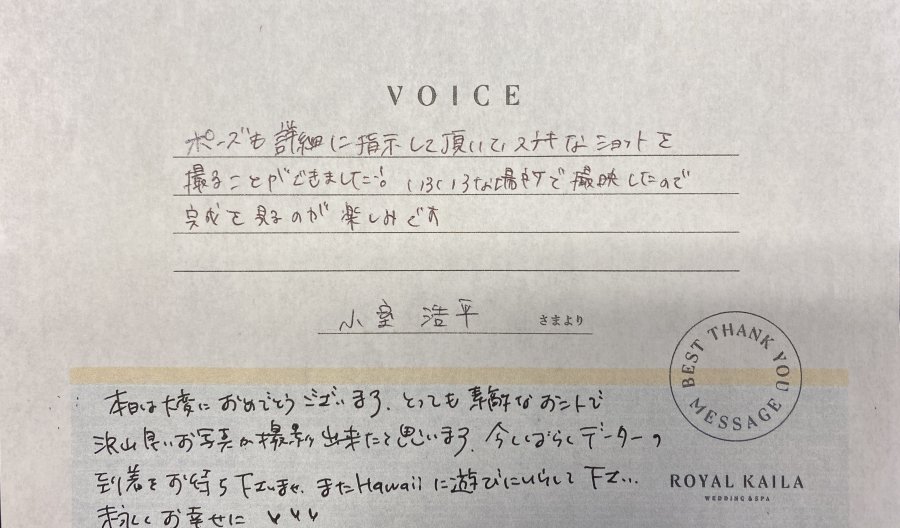 VOICE
ポーズも詳細に指示して頂いてステキなショットを
撮ることができました。いろいろな場所で撮映したので
完成を見るのが楽しみです
小室 浩平 さまより
BEST THANK YOU MESSAGE
本日は大変におめでとうございます、とっても素敵なおふたりで
沢山良いお写真が撮影出来たと思います、今しばらくデーターの
到着をお待ち下さいませ、またHawaiiに遊びにいらして下さい…
ROYAL KAILA
WEDDING & SPA
末永くお幸せに ♥♥♥